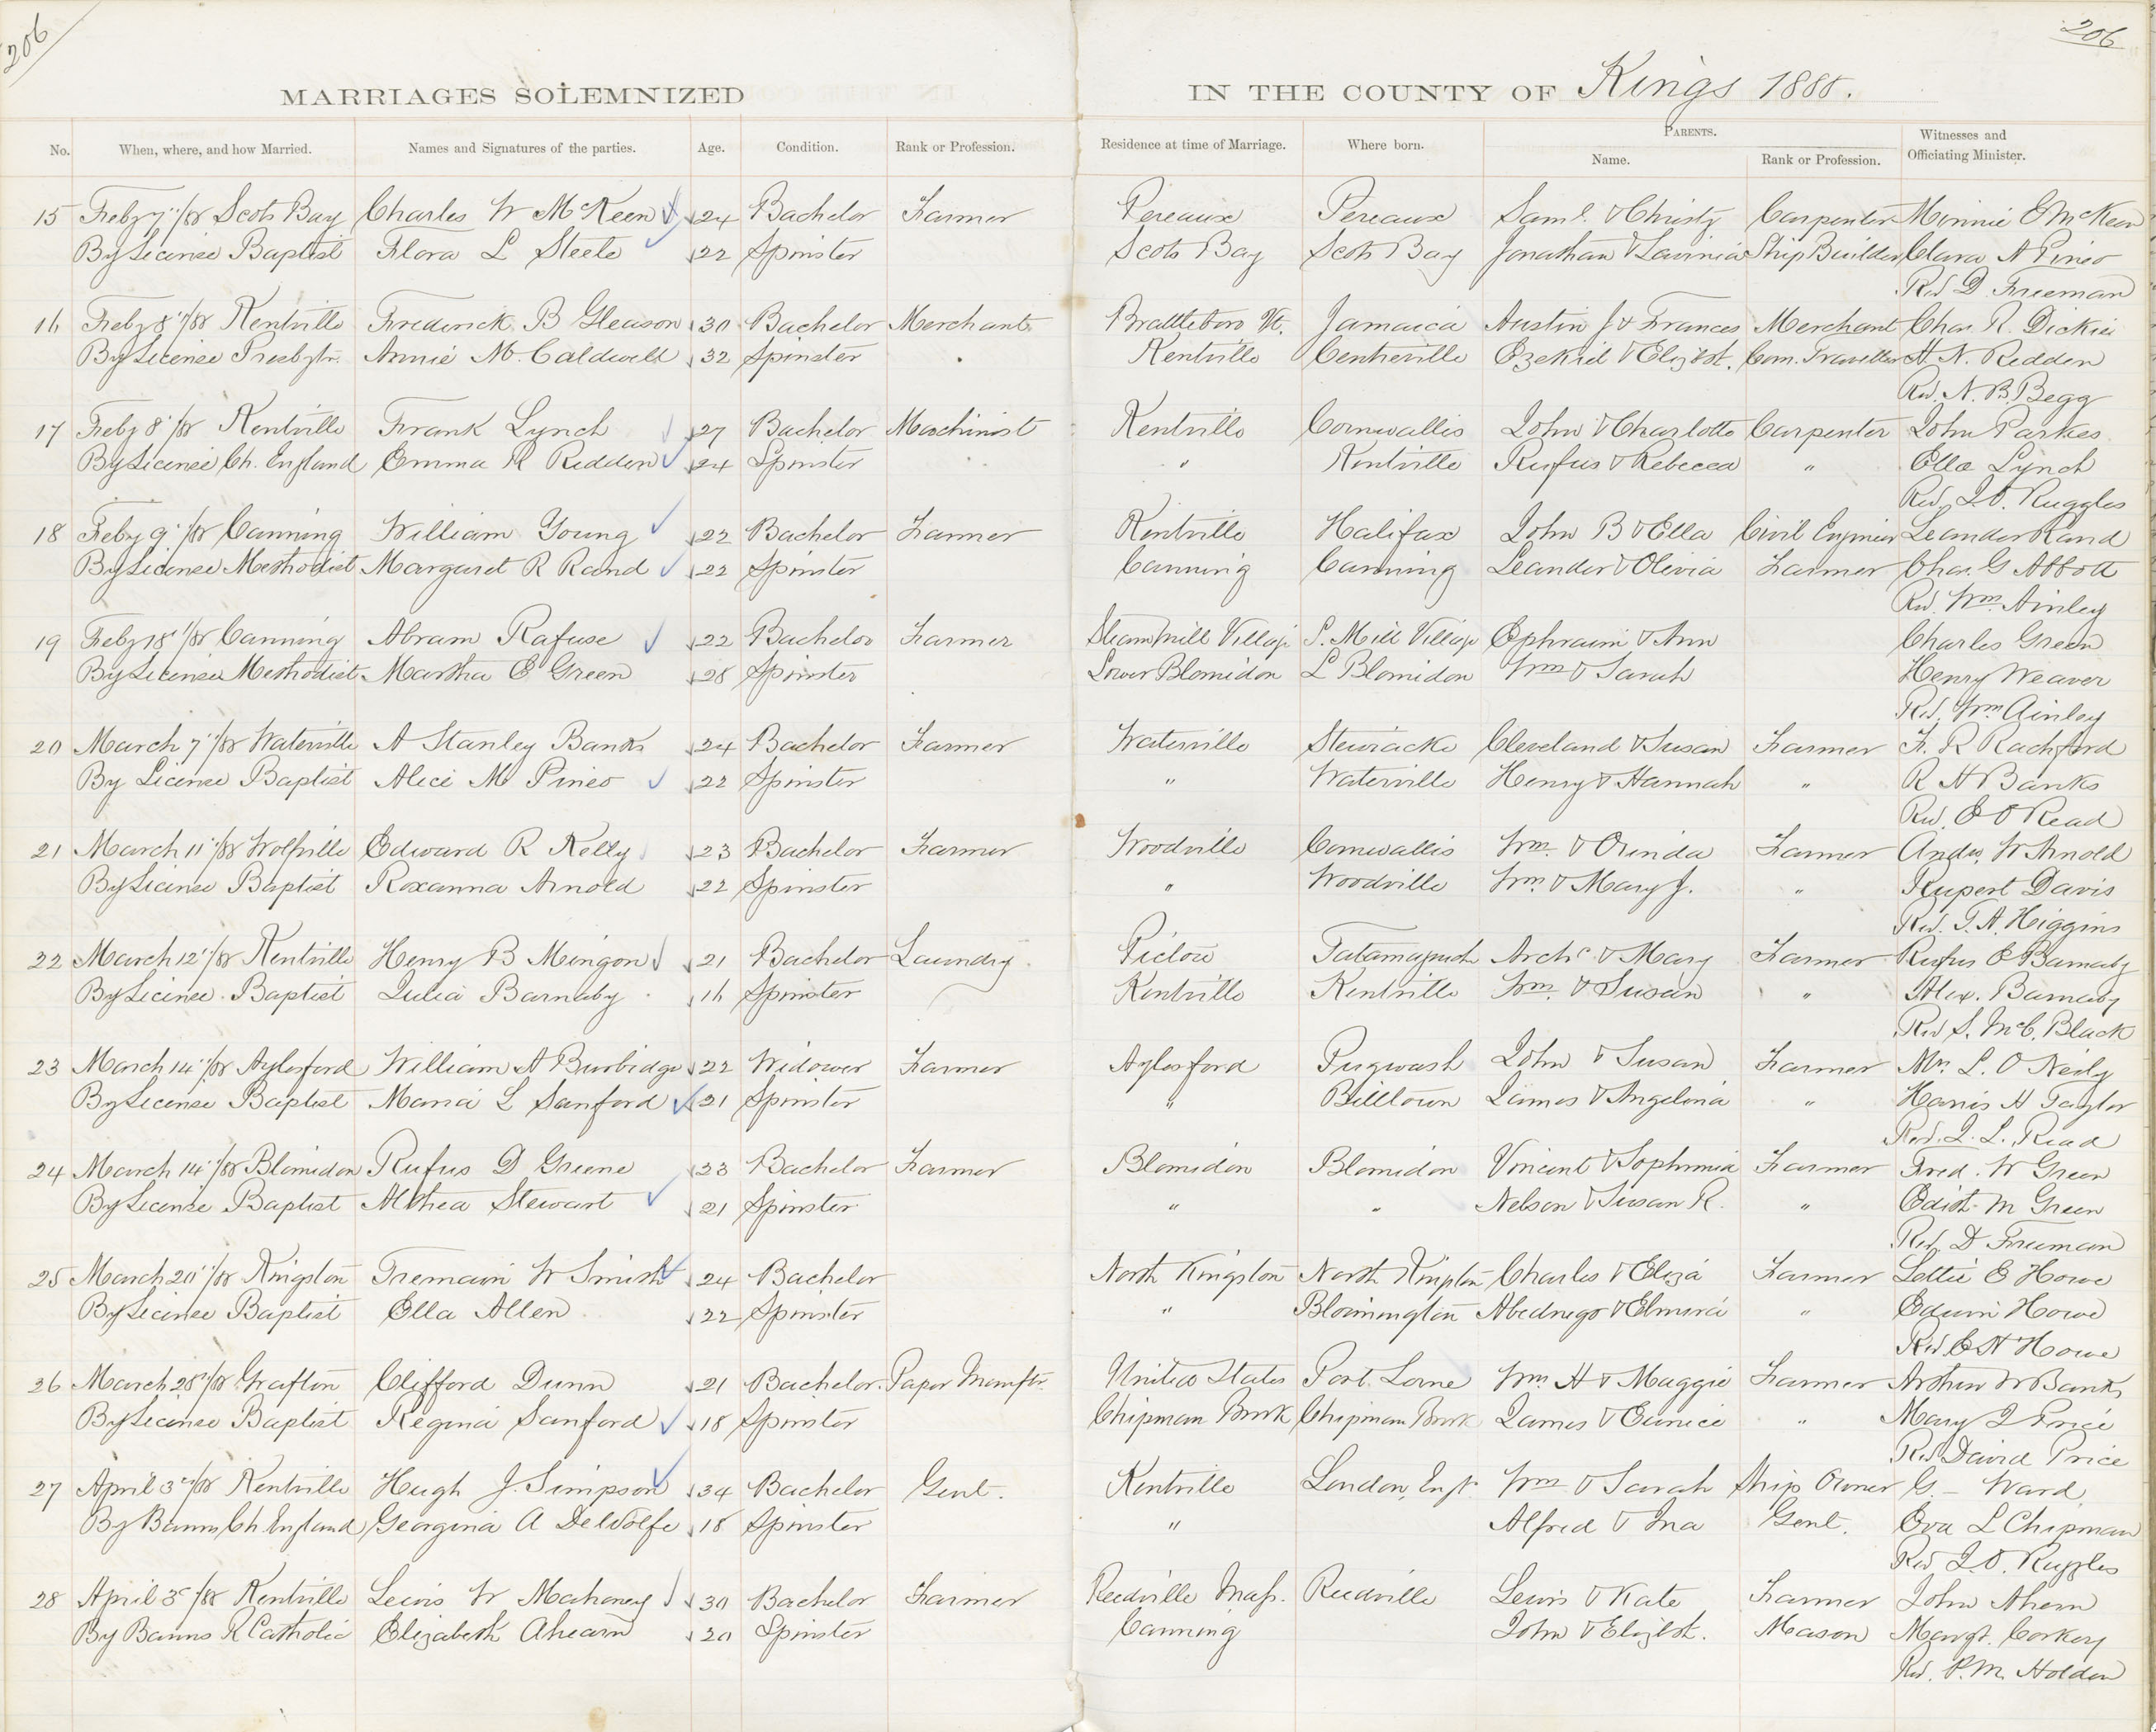 206
206
MARRIAGES SOLEMNIZED IN THE COUNTY OF Kings 1888.
No. When, where, and how Married. Names and Signatures of the parties. Age. Condition. Rank or Profession. Residence at time of Marriage. Where born. PARENTS. Name. Rank or Profession. Witnesses and Officiating Minister.
15 Feby 7"/88 Scots Bay Charles W McKeen 24 Bachelor Farmer Pereaux Pereaux Saml. & Christy Carpenter Minnie E McKeen
By License Baptist Flora L Steele 22 Spinster Scots Bay Scots Bay Jonathan & Lavinia Ship Builder Clara A Pineo
Rev D Freeman
16 Feby 8"/88 Kentville Frederick B Gleason 30 Bachelor Merchant Brattleboro Vt. Jamaica Austin J & Frances Merchant Chas. R. Dickie
By License Presbytn. Annie M. Caldwell 32 Spinster Kentville Centreville Ezekiel & Elizbt. Com. Traveller H. N. Redden
Rev. N. B. Begg
17 Feby 8"/88 Kentville Frank Lynch 27 Bachelor Machinist Kentville Cornwallis John & Charlotte Carpenter John Parkes
By License Ch. England Emma R Redden 24 Spinster " Kentville Rufus & Rebecca " Ella Lynch
Rev. J. O. Ruggles
18 Feby 9"/88 Canning William Young 22 Bachelor Farmer Kentville Halifax John B & Ella Civil Engineer Leander Rand
By License Methodist Margaret R Rand 22 Spinster Canning Canning Leander & Olivia Farmer Chas. G Abbott
Rev. Wm. Ainley
19 Feby 18"/88 Canning Abram Rafuse 22 Bachelor Farmer Steam Mill Village S. Mill Village Ephraim & Ann Charles Green
By License Methodist Martha E Green 28 Spinster Lower Blomidon L Blomidon Wm & Sarah Henry Weaver
Rev. Wm Ainley
20 March 7"/88 Waterville A Stanley Banks 24 Bachelor Farmer Waterville Stewiacke Cleveland & Susan Farmer F. R Rachford
By License Baptist Alice M Pineo 22 Spinster " Waterville Henry & Hannah " R H Banks
Rev. E O Read
21 March 11"/88 Wolfville Edward R Kelly 23 Bachelor Farmer Woodville Cornwallis Wm. & Orinda Farmer Andw. W Arnold
By License Baptist Roxanna Arnold 22 Spinster " Woodville Wm & Mary J. " Rupert Davis
Rev. T. A. Higgins
22 March 12"/88 Kentville Henry B Mingon 21 Bachelor Laundry Pictou Tatamagush Archd & Mary Farmer Rufus E Barnaby
By License Baptist Julia Barnaby 16 Spinster Kentville Kentville Wm. & Susan " Alex. Barnaby
Rev S. McC. Black
23 March 14"/88 Aylesford William A Burbidge 22 Widower Farmer Aylesford Pugwash John & Susan Farmer Mrs. L. O Neily
By License Baptist Maria L Sanford 21 Spinster " Billtown James & Angelina " Harris H Taylor
Rev. J. L. Read
24 March 14"/88 Blomidon Rufus D Greene 23 Bachelor Farmer Blomidon Blomidon Vincent & Sophronia Farmer Fred. W Green
By License Baptist Althea Stewart 21 Spinster " " Nelson & Susan R. " Edith M Green
Rev. D Freeman
25 March 20"/88 Kingston Tremain W Smith 24 Bachelor North Kingston North Kingston Charles & Eliza Farmer Lottie E Howe
By License Baptist Ella Allen 22 Spinster " Bloomington Abednego & Elmira " Edwin Howe
Rev E N Howe
26 March 28"/88 Grafton Clifford Dunn 21 Bachelor Paper Manftr. United States Port Lorne Wm H & Maggie Farmer Arthur W Banks
By License Baptist Regina Sanford 18 Spinster Chipman Brook Chipman Brook James & Eunice " Mary J Price
Rev David Price
27 April 3"/88 Kentville Hugh J. Simpson 34 Bachelor Gent. Kentville London, Engt. Wm & Sarah Ship Owner G. – Ward
By Banns Ch. England Georgina A DeWolfe 18 Spinster " Alfred & Ina Gent. Eva L Chipman
Rev J. O. Ruggles
28 April 3"/88 Kentville Lewis W Mahoney 30 Bachelor Farmer Reedville Mass. Reedville Lewis & Kate Farmer John Ahern
By Banns R Catholic Elizabeth Ahearn 20 Spinster Canning John & Elizbt. Mason Margt. Corkery
Rev. P. M. Holden